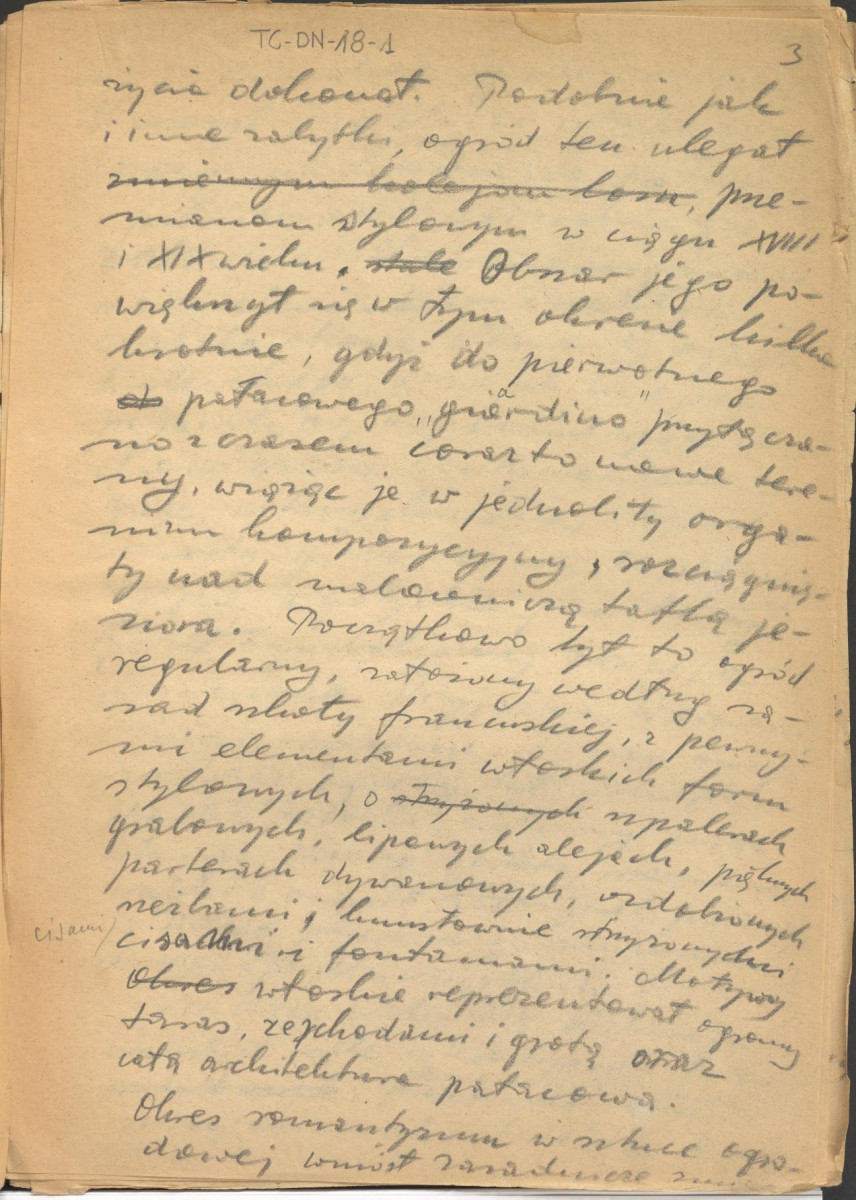 TC-DN-18-1
3
życia dokonał. Podobnie jak
i inne zabytki, ogród ten ulegał
zmiennym kolejom losu, prze-
mianom stylowym w ciągu XVIII
i XIX wieku. stale Obszar jego po-
większył się w tym okresie kilka
krotnie, gdyż do pierwotnego
ob pałacowego „giardino" przyłącza-
no z czasem coraz to nowe tere-
ny, wiążąc je w jednolity orga-
nizm kompozycyjny, rozciągnię-
ty nad malowniczą taflą je-
ziora. Początkowo był to ogród
regularny, założony według za-
sad szkoły francuskiej, z pewny-
mi elementami włoskich form
stylowych, o strzyżonych szpalerach
grabowych, lipowych alejach, pięknych
parterach dywanowych, ozdobionych
rzeźbami, kunsztownie strzyżonymi
cisami/ cisami i fontannami. Motywy
Okres włoskie reprezentował ogromny
taras, ze schodami i grotą oraz
cała architektura pałacowa.
Okres romantyzmu w sztuce ogro-
dowej wniósł zasadnicze